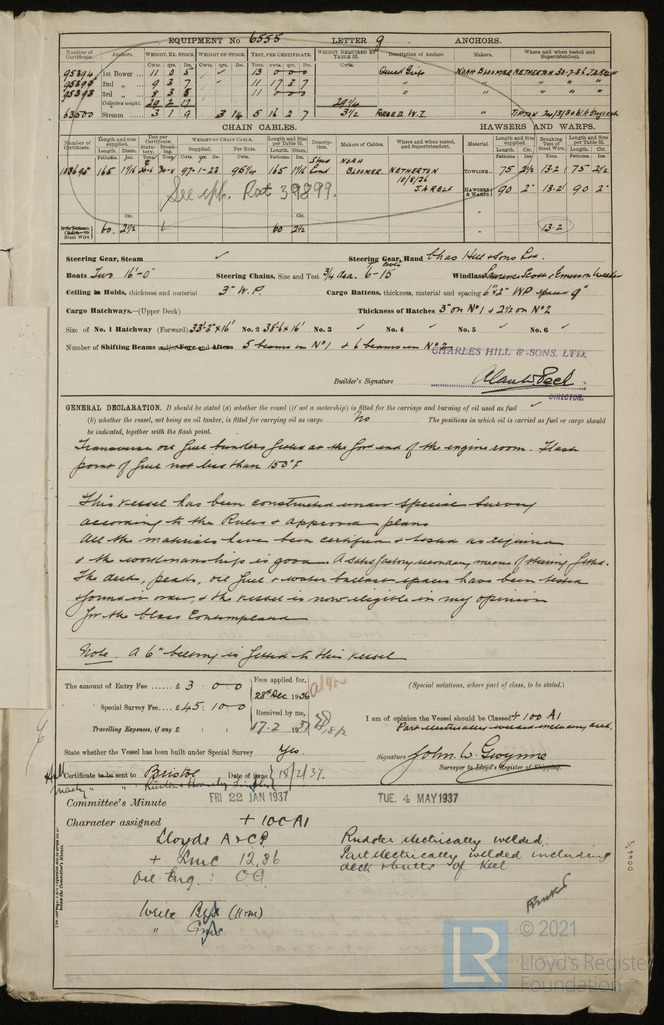 EQUIPMENT No 6555 LETTER q ANCHORS.
Number of Certificate. Anchors. WEIGHT, EX. STOCK. WEIGHT OF STOCK. TEST, PER CERTIFICATE. WEIGHT REQUIRED BY TABLE 53. Description of Anchor. Makers. Where and when tested and Superintendent.
Cwts. qrs. lbs. Cwts. qrs. lbs. Tons. cwts. qrs. lbs. Cwts.
95394 1st Bower 11 0 5 13 0 0 0 NOAH BLOOMER NETHERTON 30-7-36 J.A.RELF
2nd " 9 3 7 11 17 3 7 " "
95393 3rd " 8 3 5 11 " "
Collective weight. 29 2 17 29 1/4
63500 Stream 3 1 9 3 14 5 16 2 7 3 1/2 FORGED W.I. " TIPTON
CHAIN CABLES. HAWSERS AND WARPS.
Number of Certificate. Length and size supplied. Test per Certificate. WEIGHT OF CHAIN CABLE. Length and Size per Table 53. Description. Makers of Cables. Where and when tested, and Superintendent. Material. Length and Size supplied. Breaking Test of Steel Wire. Length and Size per Table 53.
Supplied. Per Rule.
165 1 1/16 97-1-22 95 1/4 165 1 1/16 Stud Link NOAH BLOOMER NETHERTON 10/8/36 J.A.RELF TOWLINE 75 2 1/2 13.2 75 2 1/2
HAWSERS & WARPS 90 2" 13.2 90 2"
See rph. Rot 39899.
60 2 1/2 60 2 1/2 13.2
Steering Gear, Steam ✓ Steering Gear, Hand Chas Hill & Sons Ltd.
Boats Two 16'-0" Steering Chains, Size and Test 3/4 dia. 6-15 Windlass Laurence Scott & Emerson Walker
Ceiling in Holds, thickness and material 3" W.P. Cargo Battens, thickness, material and spacing 6"x2" WP spaced 9"
Cargo Hatchways.—(Upper Deck) Thickness of Hatches 3" on No 1 & 2 1/2 on No 2
Size of No. 1 Hatchway (Forward) 33'-3" x 16' No. 2 38'6 x 16' No. 3 ✓ No. 4 ✓ No. 5 ✓ No. 6 ✓
Number of Shifting Beams and/or Fore and Afters 5 beams in No 1 & 6 beams in No 2
CHARLES HILL & SONS, LTD.
Builder's Signature
DIRECTOR.
GENERAL DECLARATION. It should be stated (a) whether the vessel (if not a motorship) is fitted for the carriage and burning of oil used as fuel ✓
(b) whether the vessel, not being an oil tanker, is fitted for carrying oil as cargo No The positions in which oil is carried as fuel or cargo should
be indicated, together with the flash point.
Transverse oil fuel bunkers fitted at the for'd end of the engine room. Flash
point of fuel not less than 150°F
This vessel has been constructed under Special Survey
according to the Rules & approved plans
All the materials have been certified & tested as required
& the workmanship is good. A satisfactory secondary means of steering fitted.
The deck, peaks, oil fuel & water ballast spaces have been tested
& found in order, & the vessel is now eligible in my opinion
for the Class Contemplated
Note. A 6" belting is fitted to this vessel
The amount of Entry Fee ...... £ 3 : 0 - 0 Fees applied for, 28th Dec 1936
Special Survey Fee .... £ 45 : 10 - 0 Received by me, 17.2 1937
Travelling Expenses, if any £ : :
(Special notations, where part of class, to be stated.)
I am of opinion the Vessel should be Classed + 100 A1
Part electrically welded including deck.
State whether the Vessel has been built under Special Survey Yes.
Signature John W. Gwynne
Surveyor to Lloyd's Register of Shipping.
Certificate to be sent to Bristol Date of issue 18/2/37.
Committee's Minute FRI 22 JAN 1937 TUE. 4 MAY 1937
Character assigned + 100 A1
Lloyds A & CP Rudder electrically welded.
+ LMC 12,36 Part electrically welded including
Oil Eng. : deck & butts of keel
Write
"
© 2021
LR
Lloyd's Register
Foundation